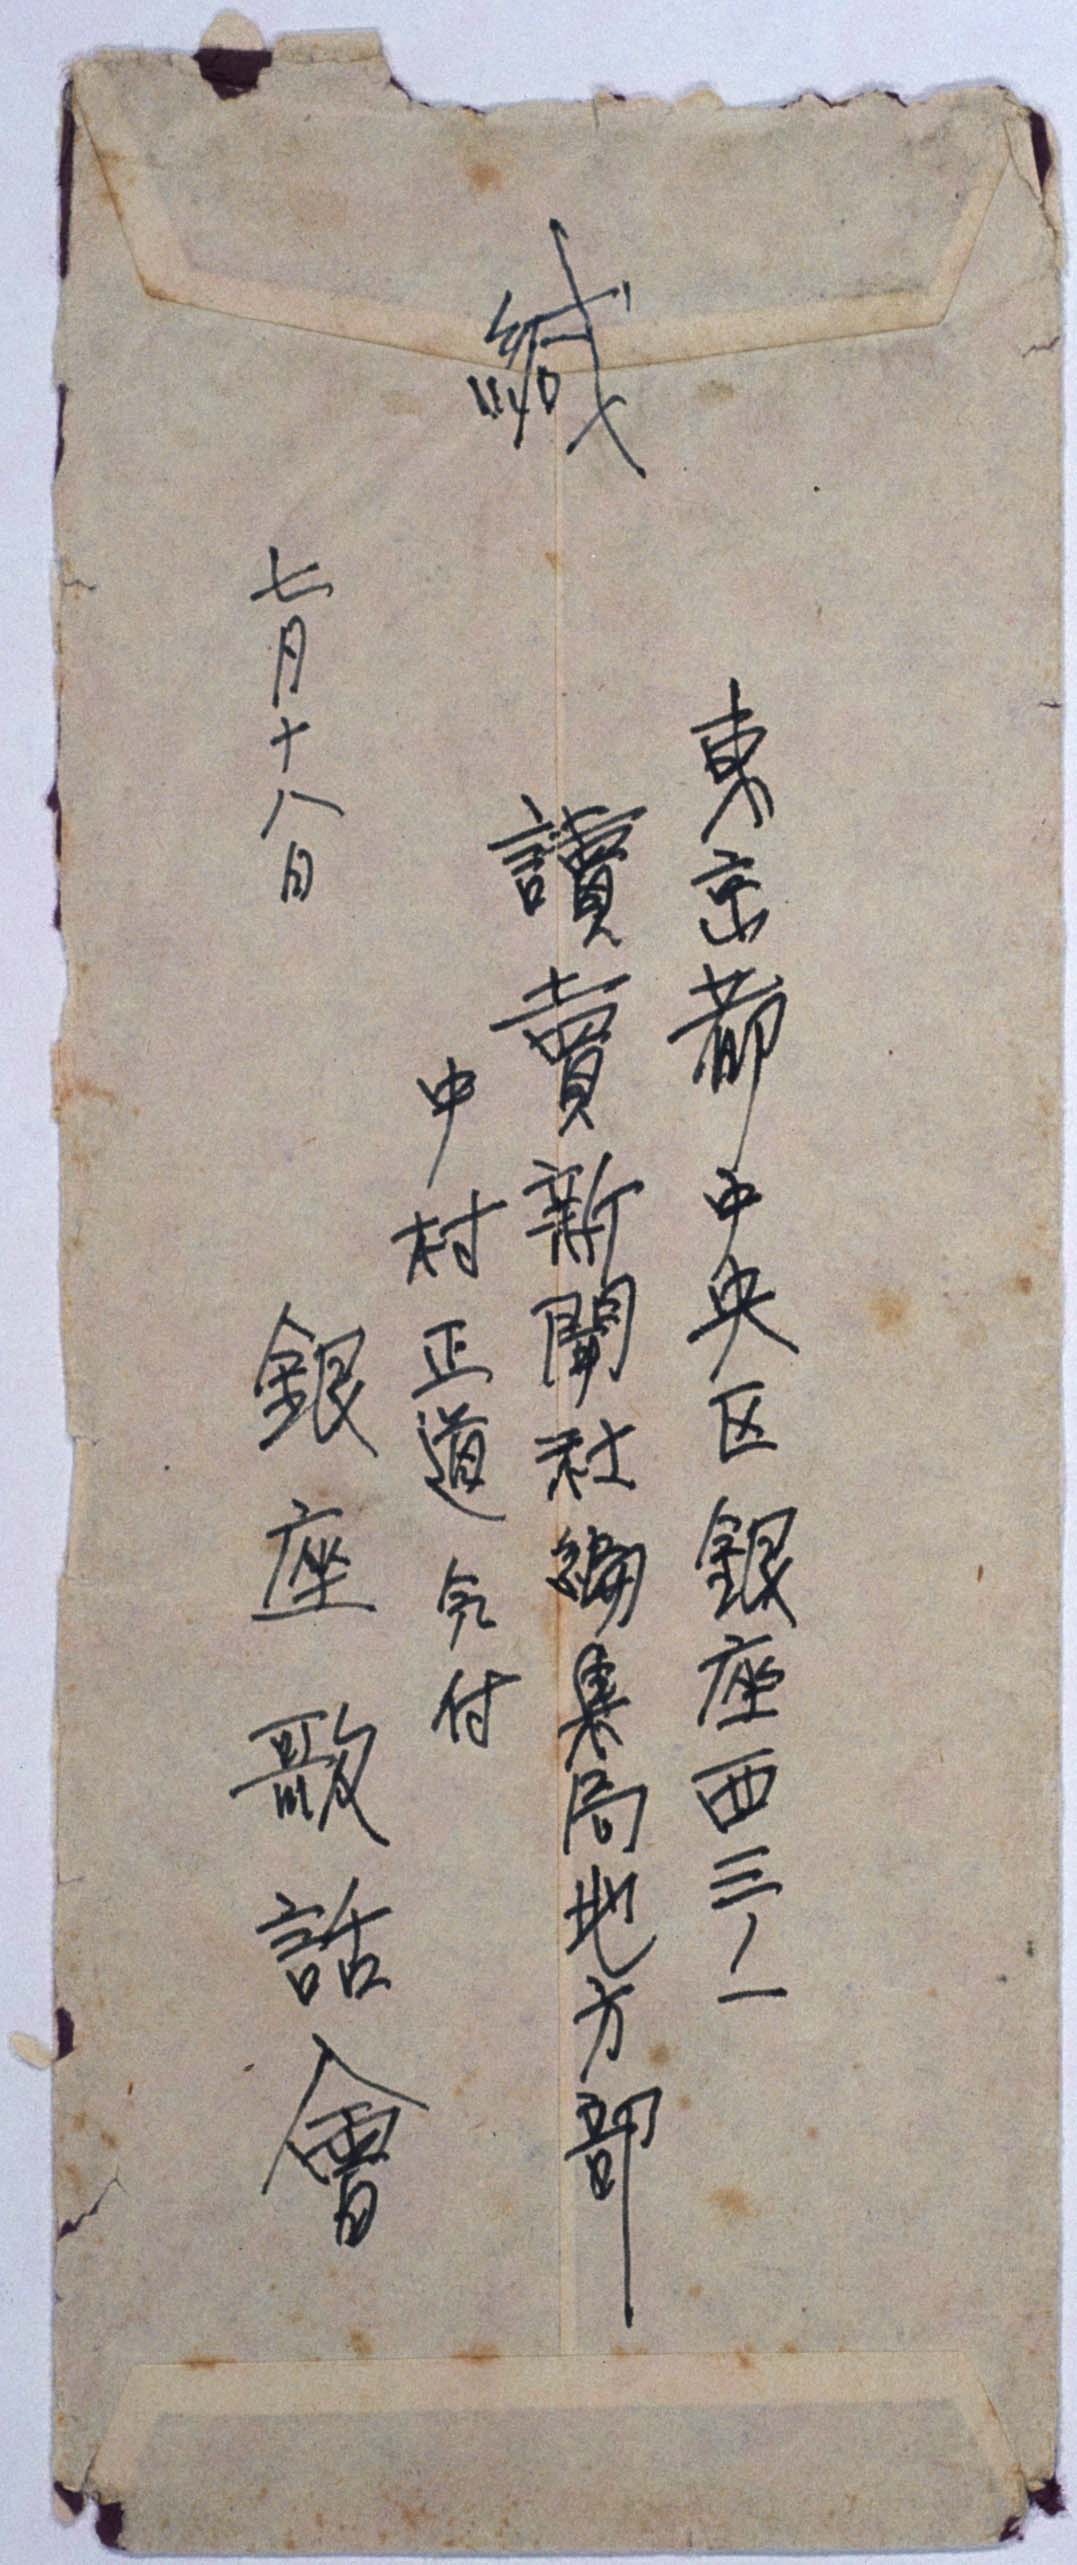 緘
東京都中央区銀座西三ノ一
讀賣新聞社編集局地方部
中村正道気付
七月十八日
銀座歌話會